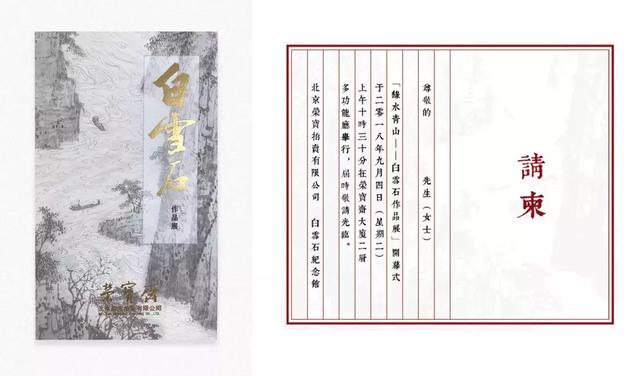 白雪石
作品展
榮寶齋
有限公司
請柬
尊敬的 先生（女士）
「綠水青山——白雪石作品展」開幕式
于二〇一八年九月四日（星期二）
上午十時三十分在榮寶齋大廈二層
多功能廳舉行，屆時敬請光臨。
北京榮寶拍賣有限公司 白雪石紀念館